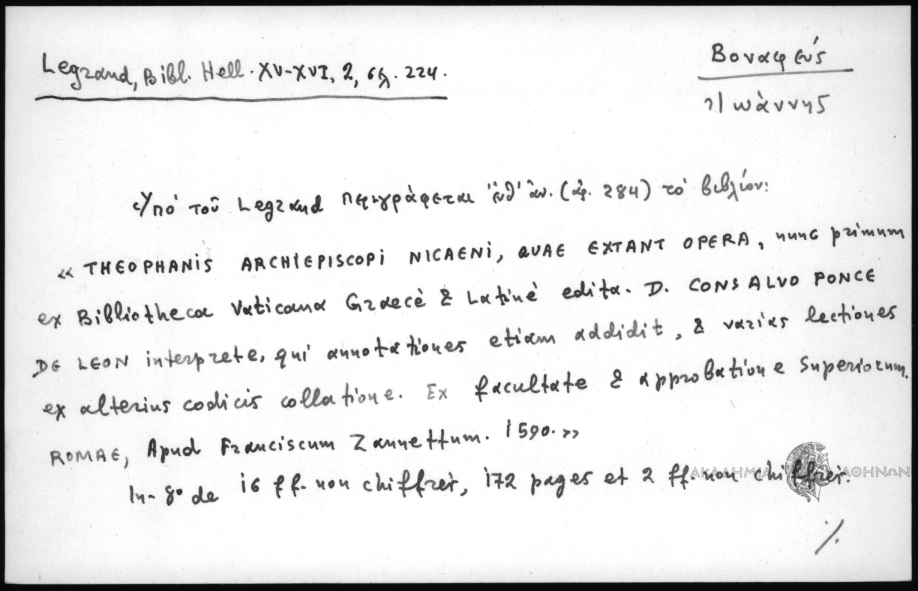 Legrand, Bibl. Hell. XV-XVI, 2, σελ. 224.
Βοναφεύς
Ἰωάννης
Ὑπό τοῦ Legrand περιγράφεται (ἀρ. 284) τό βιβλίον:
« THEOPHANIS ARCHIEPISCOPI NICAENI, QUAE EXTANT OPERA, nunc primum
ex Bibliotheca Vaticana Graecè & Latinè edita. D. CONSALVO PONCE
DE LEON interprete, qui annotationes etiam addidit, & varias lectiones
ex alterius codicis collatione. Ex facultate & approbatione Superiorum.
ROMAE, Apud Franciscum Zannettum. 1590.»
In-8º de 16 ff. non chiffrés, 172 pages et 2 ff. non chiffrés.
ΑΚΑΔΗΜΙΑ ΑΘΗΝΩΝ
./.